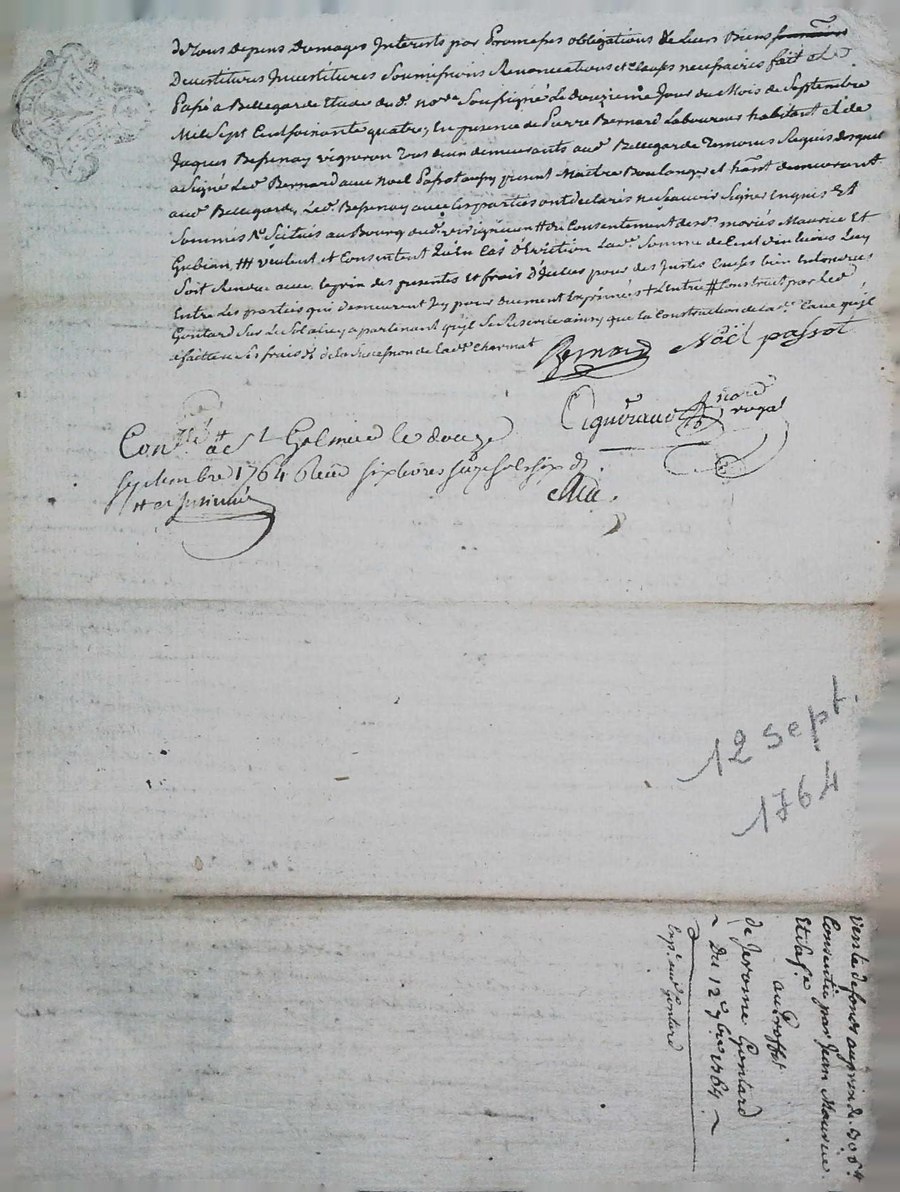 de tous depens domages Interests par Promesses obligations de Leurs Biens
Devestitures Investitures Soumissions Renonciations et clauses necessaires fait et
Passé a Bellegarde Etude du d. no.re Soussigné Le douzieme Jour du Mois de Septembre
Mil Sept Cent soixante quatre, En presence de Pierre Bernard Laboureur habitant et de
Jaques Bessenay vigneron tous deux demeurants aud. Bellegarde Temoins Requis desquels
a Signé Led. Bernard avec Noel Passot aussy present Maitre Boulanger et demeurant
aud. Bellegarde, Led. Bessenay avec Les parties ont declaré ne Scavoir Signer Enquis Et
Sommés Situés au Bourg du Consentement des mariés Maurice Et
Gubian, veulent et Consentent qu'en Cas d'Eviction Lad. Somme de Cent vin Livres Leur
Soit Rendue avec Le prix des presentes et frais pour des Justes Causes bien Entendues
Entre Les parties qui demeurent Icy pour Duement Exprimés Construit par Led.
Gontard Sur Le Sol a luy apartenant qu'il Se Reserve ainsy que La Construction de La d. Cave qu'il
a faitte a Ses frais de la Succession de La d. Charmat
Bernard Noël passot
Con.llé a St Galmier le douze
septembre 1764 Reçu six livres seize sols six d.
12 sept
1764
vente de fonds au prix de
Consentie par Jean Maurice
Et Sa f.e
au Proffit
de Jerome Gontard
Du 12e 7bre 1764
Exp. aud. Gontard